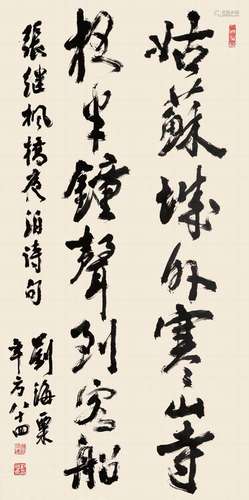 姑蘇城外寒山寺
夜半鐘聲到客船
張继枫橋夜泊诗句
劉海粟
年方八十四